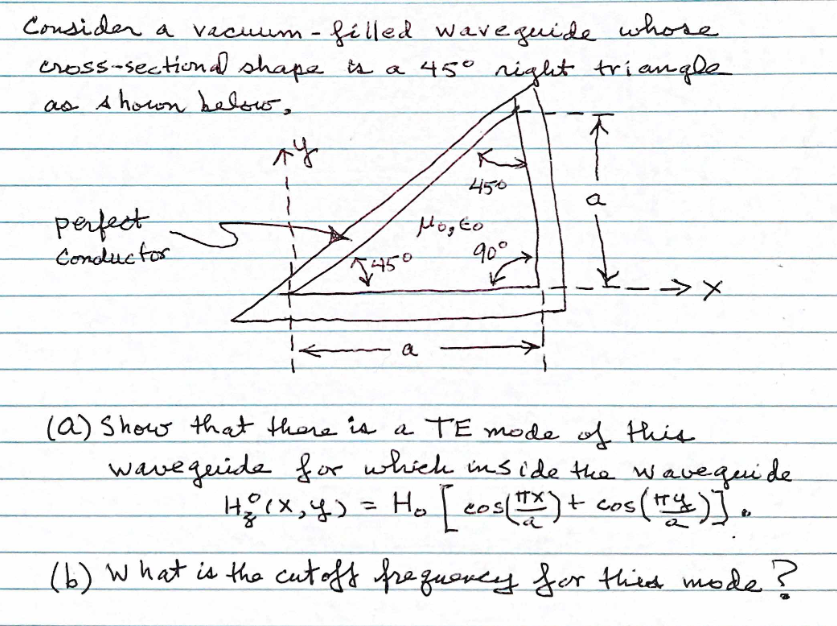 Consider a vacuum-filled waveguide whose
cross-sectional shape is a 45° right triangle
as shown below.
y
45°
a
perfect
conductor
μ₀, ε₀
45°
90°
x
a
(a) Show that there is a TE mode of this
waveguide for which inside the waveguide
H_z^0(x,y) = H₀ [cos(πx/a) + cos(πy/a)].
(b) What is the cutoff frequency for this mode?